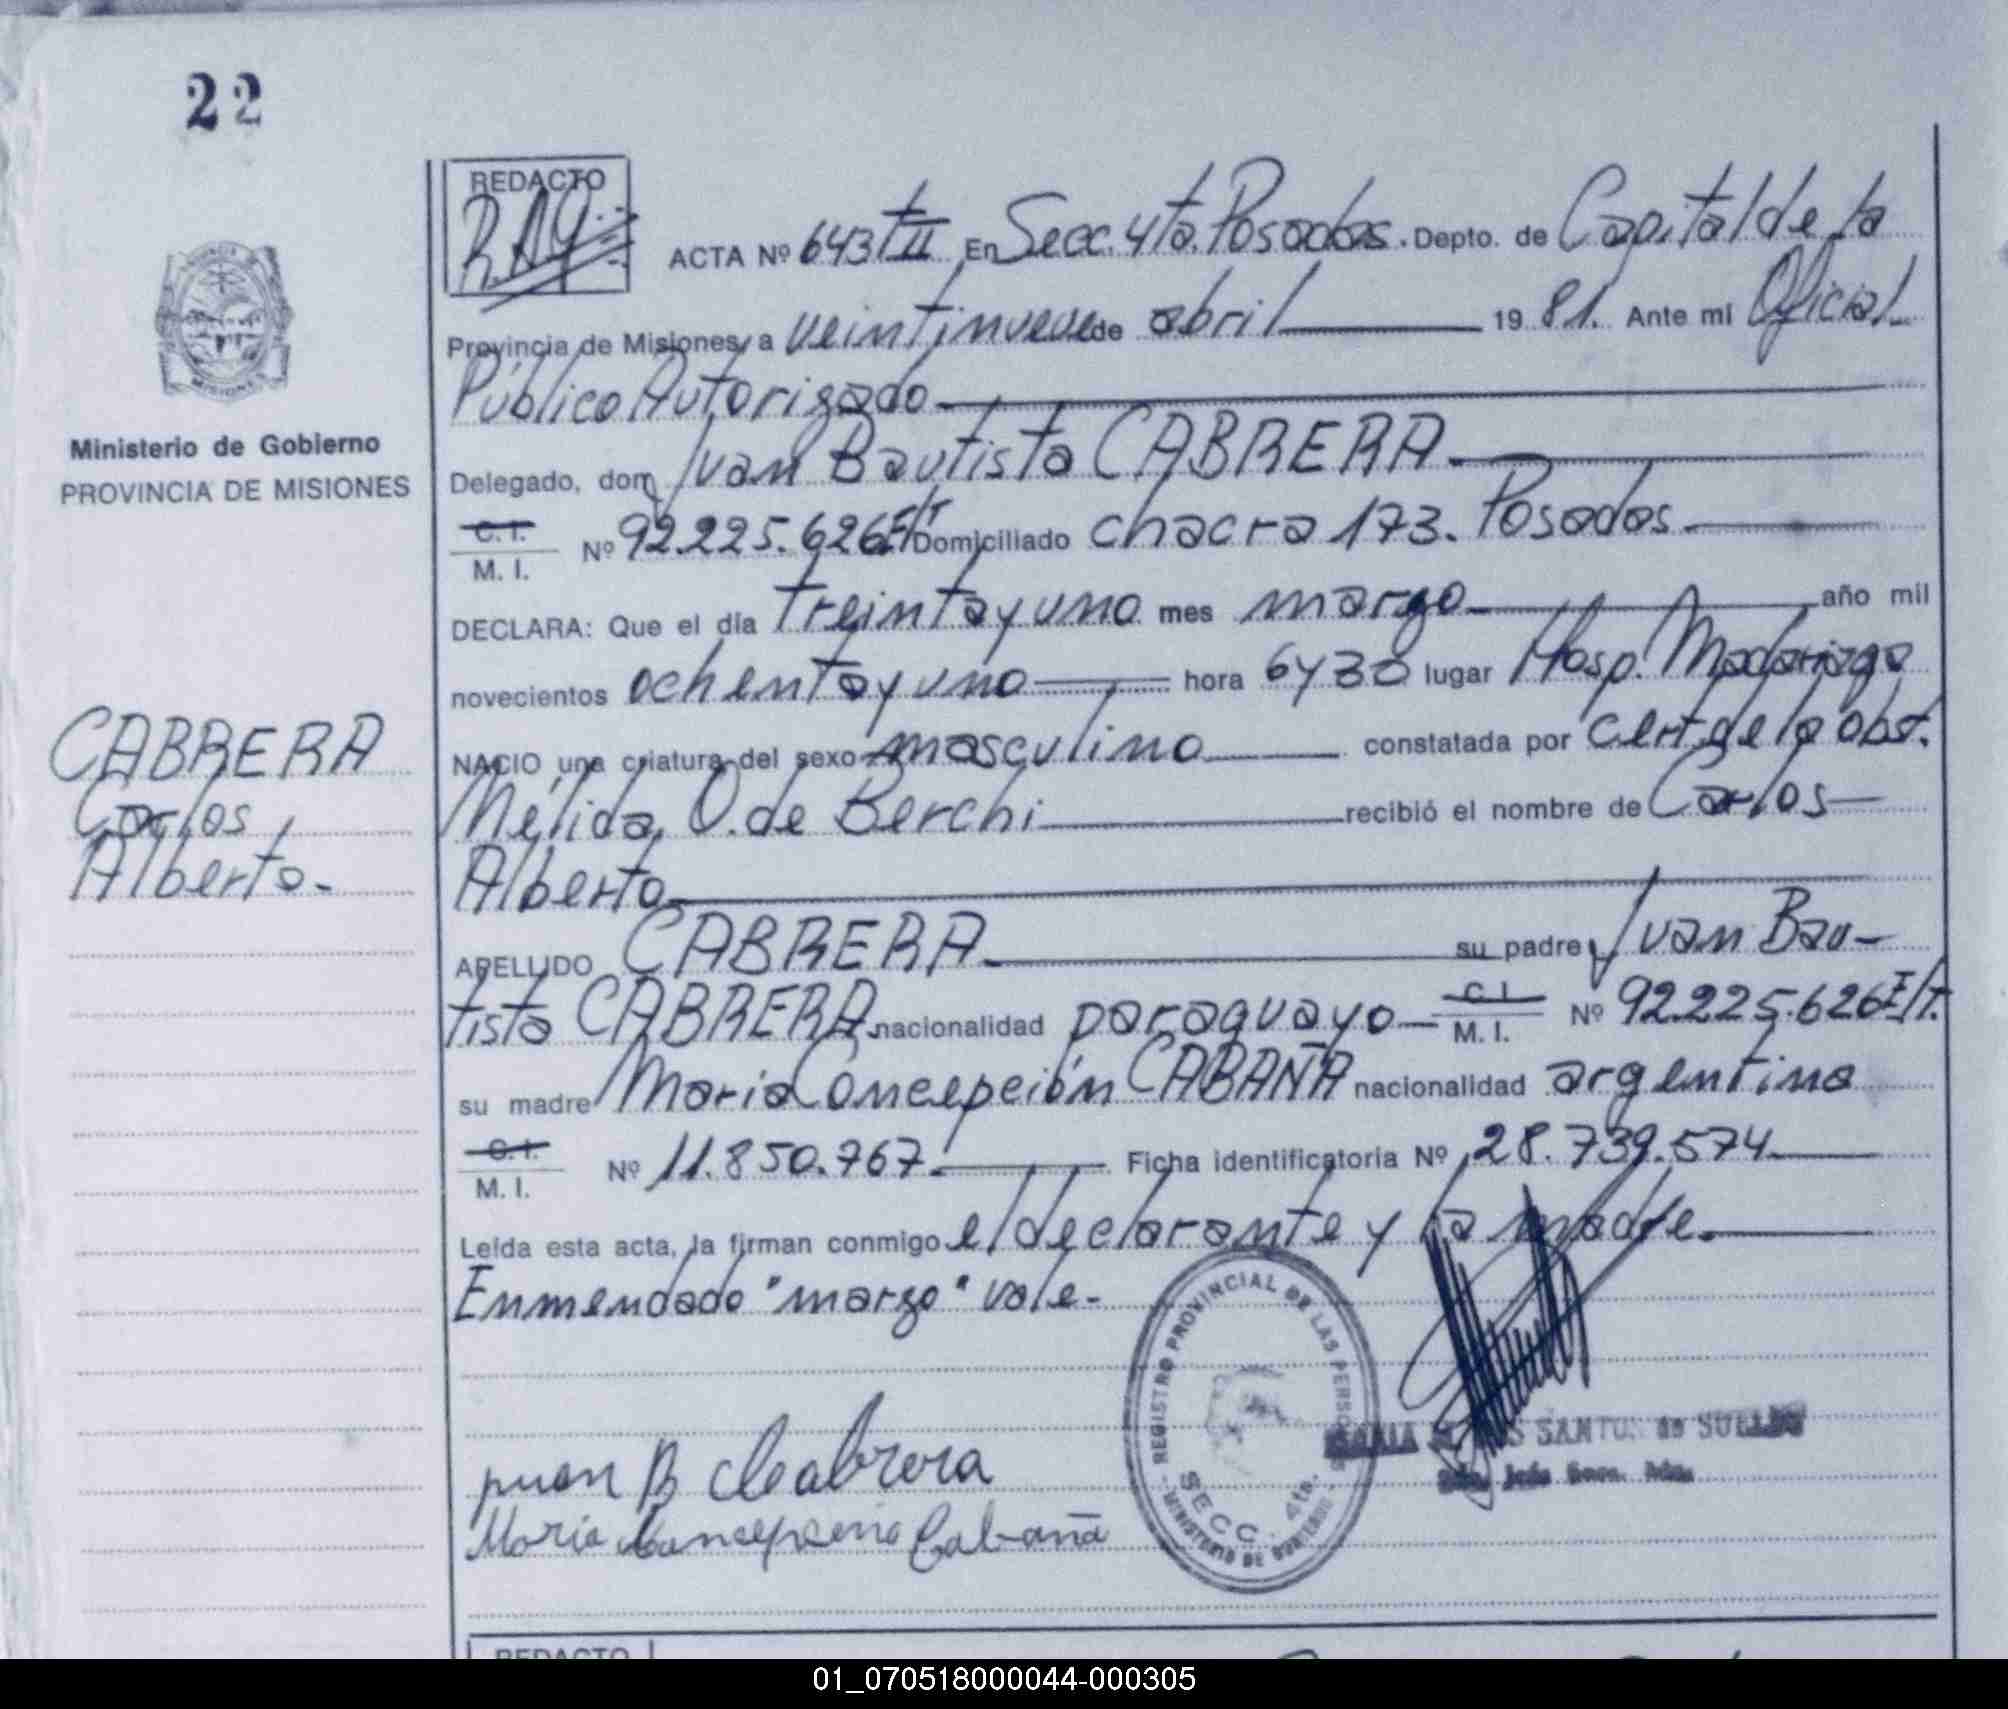 22
REDACTO
R.A.G.
ACTA Nº 643 t II En Secc. 4ta. Posadas. Depto. de Capital de la
Provincia de Misiones, a veintinueve de abril 1981. Ante mi Oficial
Público Autorizado
Ministerio de Gobierno
PROVINCIA DE MISIONES
Delegado, don Juan Bautista CABRERA
C. I.
M. I. Nº 92.225.626 E/T Domiciliado chacra 173. Posadas.
DECLARA: Que el día treinta y uno mes marzo año mil
novecientos ochenta y uno hora 6 y 30 lugar Hosp. Madariaga
NACIO una criatura del sexo masculino constatada por cert. de la obst.
Nélida O. de Berchi recibió el nombre de Carlos
Alberto
CABRERA
Carlos
Alberto.-
APELLIDO CABRERA su padre Juan Bau-
tista CABRERA. nacionalidad paraguayo C. I.
M. I. Nº 92.225.626 E/T.
su madre Maria Concepción CABAÑA nacionalidad argentina
C. I.
M. I. Nº 11.850.767. Ficha identificatoria Nº 28.739.574
Leída esta acta, la firman conmigo el declarante y la madre.
Enmendado "marzo" vale.-
REGISTRO PROVINCIAL DE LAS PERSONAS
SECC. 4ta.
MINISTERIO DE GOBIERNO
SANTOS de
Juan B Cabrera
Maria Cabaña
REDACTO
01_070518000044-000305